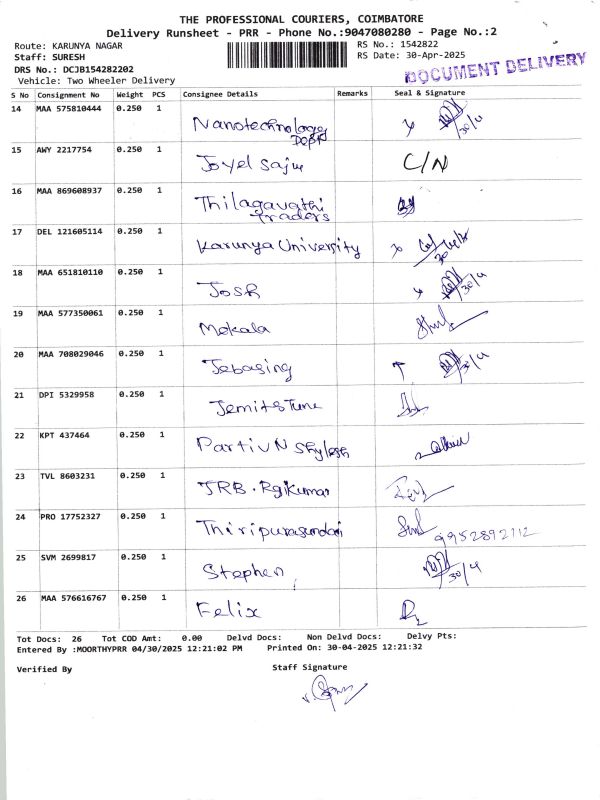 THE PROFESSIONAL COURIERS, COIMBATORE
Delivery Runsheet - PRR - Phone No.:9047080280 - Page No.:2
Route: KARUNYA NAGAR
RS No.: 1542822
Staff: SURESH
RS Date: 30-Apr-2025
DRS No.: DCJB154282202
Vehicle: Two Wheeler Delivery
DOCUMENT DELIVERY
S No Consignment No Weight PCS Consignee Details Remarks Seal & Signature
14 MAA 575810444 0.250 1 Nanotechnology
Dept 30/4
15 AWY 2217754 0.250 1 Joyel Saju C/N
16 MAA 869608937 0.250 1 Thilagavathi
Traders
17 DEL 121605114 0.250 1 Karunya University
18 MAA 651810110 0.250 1 Josh 30/4
19 MAA 577350061 0.250 1 Mekala
20 MAA 708029046 0.250 1 Jebasing 30/4
21 DPI 5329958 0.250 1
22 KPT 437464 0.250 1 N Shylesh
23 TVL 8603231 0.250 1 JRB. Rajkumar
24 PRO 17752327 0.250 1 Thiripurasundari 9952892112
25 SVM 2699817 0.250 1 Stephen 30/4
26 MAA 576616767 0.250 1 Felix
Tot Docs: 26 Tot COD Amt: 0.00 Delvd Docs: Non Delvd Docs: Delvy Pts:
Entered By :MOORTHYPRR 04/30/2025 12:21:02 PM Printed On: 30-04-2025 12:21:32
Verified By Staff Signature